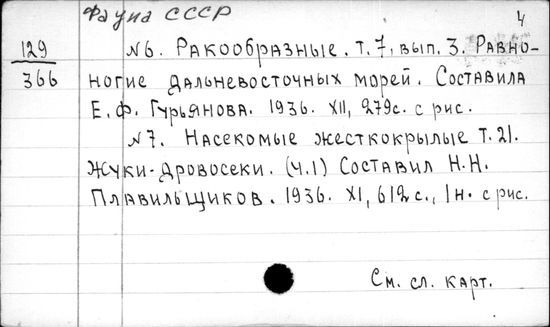 Фауна СССР
4
129
366
№6. Ракообразные. т.7, вып. 3. Равно-
ногие дальневосточных морей. Составила
Е.Ф. Гурьянова. 1936. XII, 279с. с рис.
№7. Насекомые жесткокрылые т.21.
Жуки-дровосеки. (ч.1) Составил Н.Н.
Плавильщиков. 1936. XI, 612с., 1н. с рис.
См. сл. карт.